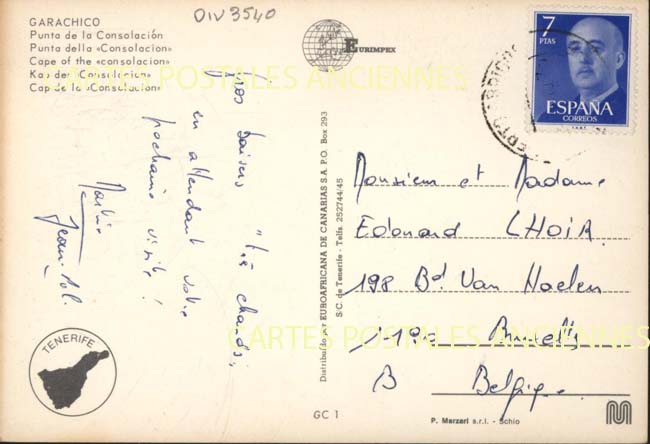 DIV3540
GARACHICO
Punta de la Consolación
Punta della «Consolacion»
Cape of the «consolacion»
Kap der «Consolacion»
Cap de la «Consolacion»
EURIMPEX
7
PTAS
ESPAÑA
CORREOS
CARTES POSTALES ANCIENNES
Gros baisers "très chauds",
en attendant votre
prochaine visite !
Jean-Pol.
Monsieur et Madame
Edouard LHOIR
198 Bd. Van Haelen
Bruxelles
B Belgique.
Distribuido por EUROAFRICANA DE CANARIAS S.A. P.O. Box 293
S/C. de Tenerife - Telfs. 252744/45
CARTES POSTALES ANCIENNES
TENERIFE
GC 1
P. Marzari s.r.l. - Schio